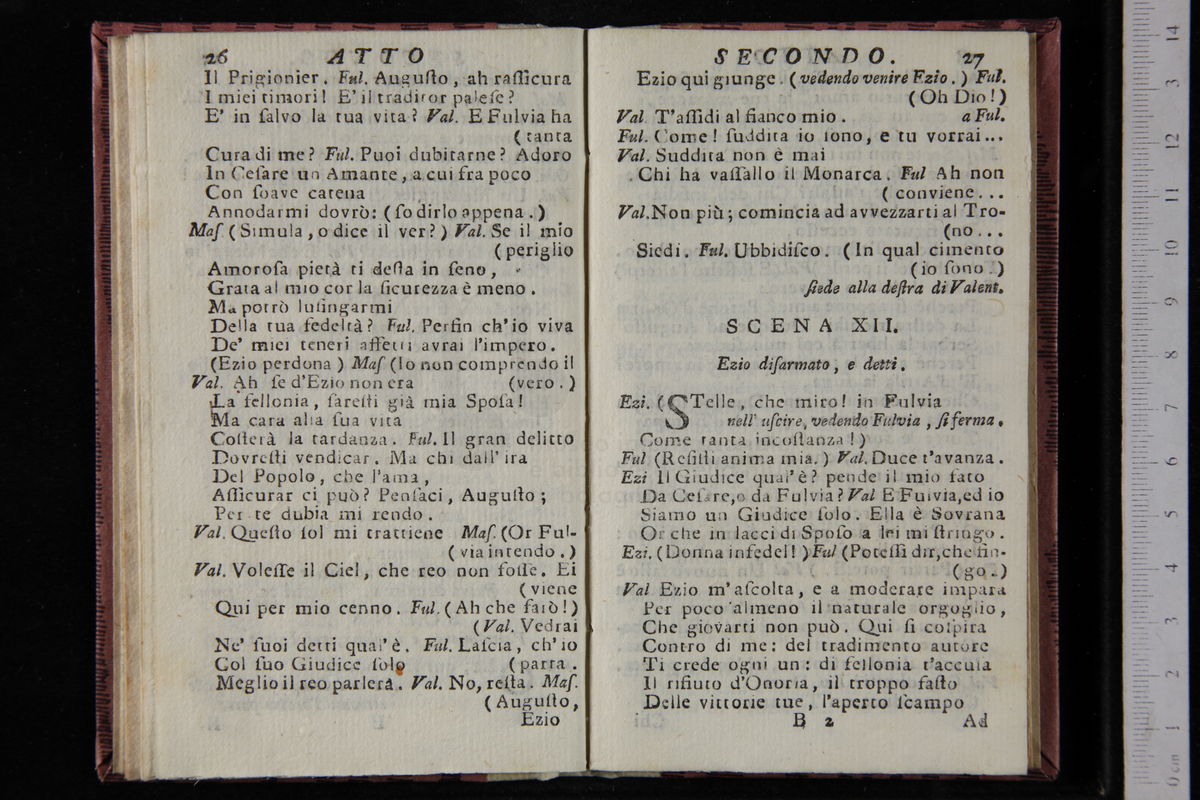 26 ATTO
Il Prigionier. Ful. Auguſto, ah raſſicura
I miei timori! E' il traditor paleſe?
E' in ſalvo la tua vita? Val. E Fulvia ha
(tanta
Cura di me? Ful. Puoi dubitarne? Adoro
In Ceſare un Amante, a cui fra poco
Con ſoave catena
Annodarmi dovrò: (ſo dirlo appena.)
Maſ (Simula, o dice il ver?) Val. Se il mio
(periglio
Amoroſa pietà ti deſta in ſeno,
Grata al mio cor la ſicurezza è meno.
Ma potrò luſingarmi
Della tua fedeltà? Ful. Perfin ch'io viva
De' miei teneri affetti avrai l'impero.
(Ezio perdona) Maſ (Io non comprendo il
Val. Ah ſe d'Ezio non era (vero.)
La fellonia, ſareſti già mia Spoſa!
Ma cara alla ſua vita
Coſterà la tardanza. Ful. Il gran delitto
Dovreſti vendicar. Ma chi dall' ira
Del Popolo, che l'ama,
Aſſicurar ci può? Penſaci, Auguſto;
Per te dubia mi rendo.
Val. Queſto ſol mi trattiene Maſ. (Or Ful-
(via intendo.)
Val. Voleſſe il Ciel, che reo non foſſe. Ei
(viene
Qui per mio cenno. Ful. (Ah che farò!)
(Val. Vedrai
Ne' ſuoi detti qual' è. Ful. Laſcia, ch'io
Col ſuo Giudice ſolo (parta.
Meglio il reo parlerà. Val. No, reſta. Maſ.
(Auguſto,
Ezio
SECONDO. 27
Ezio qui giunge. (vedendo venire Ezio.) Ful.
(Oh Dio!)
Val T'aſſidi al fianco mio. a Ful.
Ful. Come! ſuddita io ſono, e tu vorrai...
Val. Suddita non è mai
Chi ha vaſſallo il Monarca. Ful Ah non
(conviene...
Val. Non più; comincia ad avvezzarti al Tro-
(no...
Siedi. Ful. Ubbidiſco. (In qual cimento
(io ſono.)
ſiede alla deſtra di Valent.
SCENA XII.
Ezio diſarmato, e detti.
Ezi. (STelle, che miro! in Fulvia
nell' uſcire, vedendo Fulvia, ſi ferma.
Come tanta incoſtanza!)
Ful (Reſiſti anima mia.) Val. Duce t'avanza.
Ezi Il Giudice qual' è? pende il mio fato
Da Ceſare, o da Fulvia? Val E Fulvia, ed io
Siamo un Giudice ſolo. Ella è Sovrana
Or che in lacci di Spoſo a lei mi ſtringo.
Ezi. (Donna infedel!) Ful (Poteſſi dir, che fin-
(go.)
Val Ezio m'aſcolta, e a moderare impara
Per poco almeno il naturale orgoglio,
Che giovarti non può. Qui ſi coſpira
Contro di me: del tradimento autore
Ti crede ogni un: di fellonia t'accuſa
Il rifiuto d'Onoria, il troppo faſto
Delle vittorie tue, l'aperto ſcampo
B 2 Ad
0 cm 1 2 3 4 5 6 7 8 9 10 11 12 13 14